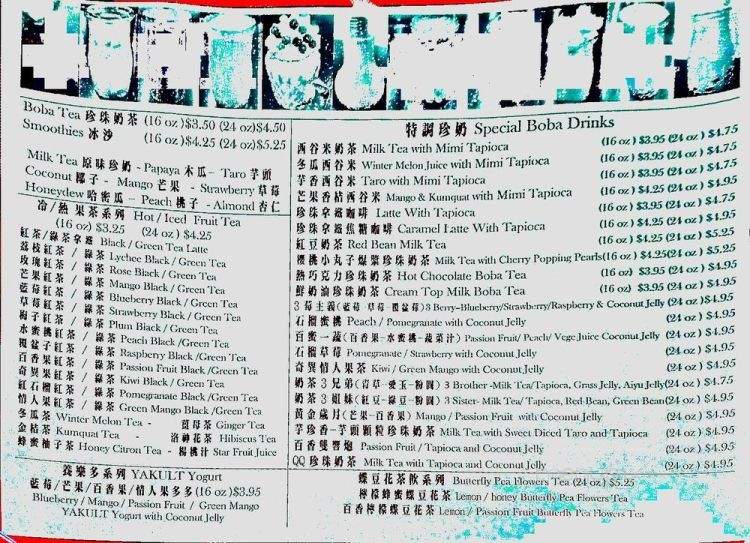 Boba Tea 珍珠奶茶 (16 oz)$3.50 (24 oz)$4.50
Smoothies 冰沙 (16 oz)$4.25 (24 oz)$5.25
Milk Tea 原味珍奶 - Papaya 木瓜 - Taro 芋頭
Coconut 椰子 - Mango 芒果 - Strawberry 草莓
Honeydew 哈密瓜 - Peach 桃子 - Almond 杏仁
冷/熱 果茶系列 Hot/Iced Fruit Tea
(16 oz) $3.25 (24 oz) $4.25
紅茶/綠茶拿鐵 Black/Green Tea Latte
荔枝紅茶 / 綠茶 Lychee Black/Green Tea
玫瑰紅茶 / 綠茶 Rose Black/Green Tea
芒果紅茶 / 綠茶 Mango Black/Green Tea
藍莓紅茶 / 綠茶 Blueberry Black/Green Tea
草莓紅茶 / 綠茶 Strawberry Black/Green Tea
梅子紅茶 / 綠茶 Plum Black/Green Tea
水蜜桃紅茶 / 綠茶 Peach Black/Green Tea
覆盆子紅茶 / 綠茶 Raspberry Black/Green Tea
百香果紅茶 / 綠茶 Passion Fruit Black/Green Tea
奇異果紅茶 / 綠茶 Kiwi Black/Green Tea
紅石榴紅茶 / 綠茶 Pomegranate Black/Green Tea
情人果紅茶 / 綠茶 Green Mango Black/Green Tea
冬瓜茶 Winter Melon Tea - 薑母茶 Ginger Tea
金桔茶 Kumquat Tea - 洛神花茶 Hibiscus Tea
蜂蜜柚子茶 Honey Citron Tea - 楊桃汁 Star Fruit Juice
養樂多系列 YAKULT Yogurt
藍莓/芒果/百香果/情人果多多(16 oz)$3.95
Blueberry / Mango / Passion Fruit / Green Mango
YAKULT Yogurt with Coconut Jelly
特調珍奶 Special Boba Drinks
西谷米奶茶 Milk Tea with Mimi Tapioca (16 oz) $3.95 (24 oz) $4.75
冬瓜西谷米 Winter Melon Juice with Mimi Tapioca (16 oz) $3.95 (24 oz) $4.75
芋香西谷米 Taro with Mimi Tapioca (16 oz) $3.95 (24 oz) $4.75
芒果香桔西谷米 Mango & Kumquat with Mimi Tapioca (16 oz) $4.25 (24 oz) $4.95
珍珠拿鐵咖啡 Latte With Tapioca (16 oz) $3.95 (24 oz) $4.75
珍珠拿鐵焦糖咖啡 Caramel Latte With Tapioca (16 oz) $4.25 (24 oz) $4.95
紅豆奶茶 Red Bean Milk Tea (16 oz) $4.25 (24 oz) $5.25
櫻桃小丸子爆漿珍珠奶茶 Milk Tea with Cherry Popping Pearls(16 oz) $4.25(24 oz) $5.25
熱巧克力珍珠奶茶 Hot Chocolate Boba Tea (16 oz) $3.95 (24 oz) $4.95
鮮奶油珍珠奶茶 Cream Top Milk Boba Tea (16 oz) $3.95 (24 oz) $4.95
3 莓主義(藍莓-草莓-覆盆莓) 3 Berry-Blueberry/Strawberry/Raspberry & Coconut Jelly (24 oz) $4.95
石榴蜜桃 Peach / Pomegranate with Coconut Jelly (24 oz) $4.95
百蜜一蔬(百香果-水蜜桃-蔬菜汁) Passion Fruit/ Peach/ Vege Juice Coconut Jelly (24 oz) $4.95
石榴草莓 Pomegranate / Strawberry with Coconut Jelly (24 oz) $4.95
奇異情人果 Kiwi / Green Mango with Coconut Jelly (24 oz) $4.95
奶茶3兄弟(青草-愛玉-粉圓) 3 Brother-Milk Tea/Tapioca, Grass Jelly, Aiyu Jelly(24 oz) $4.75
奶茶3姐妹(紅豆-綠豆-粉圓) 3 Sister-Milk Tea/ Tapioca, Red-Bean, Green Bean(24 oz) $4.95
黃金歲月(芒果-百香果) Mango / Passion Fruit with Coconut Jelly (24 oz) $4.95
芋珍香-芋頭顆粒珍珠奶茶 Milk Tea with Sweet Diced Taro and Tapioca (24 oz) $4.95
百香雙響炮 Passion Fruit / Tapioca and Coconut Jelly (24 oz) $4.95
QQ 珍珠奶茶 Milk Tea with Tapioca and Coconut Jelly (24 oz) $4.95
蝶豆花茶飲系列 Butterfly Pea Flowers Tea (24 oz) $5.25
檸檬蜂蜜蝶豆花茶 Lemon / honey Butterfly Pea Flowers Tea
百香檸檬蝶豆花茶 Lemon / Passion Fruit Butterfly Pea Flowers Tea